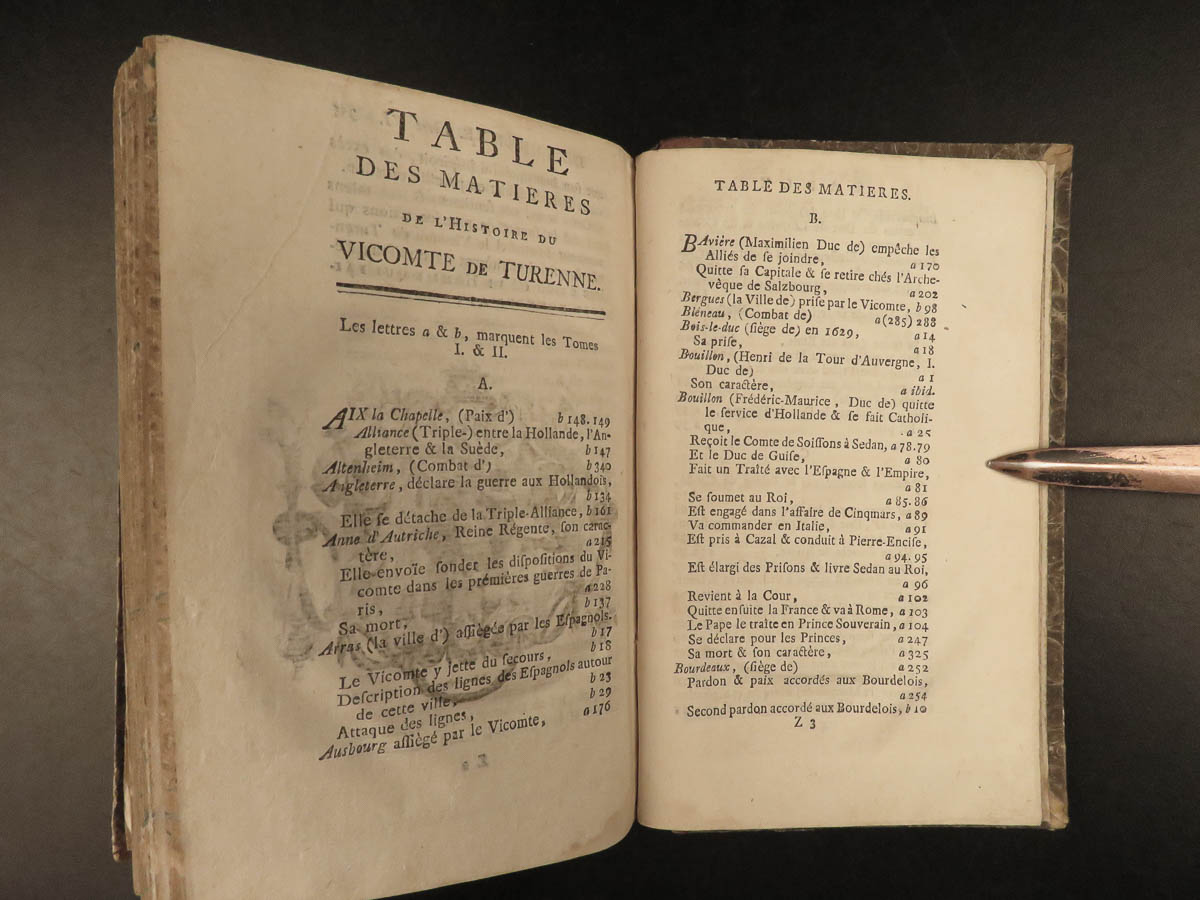 TABLE
DES MATIERES
DE L'HISTOIRE DU
VICOMTE DE TURENNE.
Les lettres a & b, marquent les Tomes
I. & II.
A.
AIX la Chapelle, (Paix d') b 148. 149
Alliance (Triple-) entre la Hollande, l'An-
gleterre & la Suède, b 147
Altenheim, (Combat d') b 340
Angleterre, déclare la guerre aux Hollandois,
b 134
Elle ſe détache de la Triple-Alliance, b 161
Anne d'Autriche, Reine Régente, ſon carac-
tère, a 215
Elle envoïe ſonder les diſpoſitions du Vi-
comte dans les prémières guerres de Pa-
ris, a 228
Sa mort, b 137
Arras (la ville d') aſſiégée par les Eſpagnols.
b 17
Le Vicomte y jette du ſecours, b 18
Deſcription des lignes des Eſpagnols autour
de cette ville, b 23
Attaque des lignes, b 29
Ausbourg aſſiégé par le Vicomte, a 176
TABLE DES MATIERES.
B.
BAvière (Maximilien Duc de) empêche les
Alliés de ſe joindre, a 170
Quitte ſa Capitale & ſe retire chés l'Arche-
vèque de Salzbourg, a 202
Bergues (la Ville de) priſe par le Vicomte, b 98
Bléneau, (Combat de) a (285) 288
Bois-le-duc (ſiège de) en 1629, a 14
Sa priſe, a 18
Bouillon, (Henri de la Tour d'Auvergne, I.
Duc de) a 1
Son caractère, a ibid.
Bouillon (Frédéric-Maurice, Duc de) quitte
le ſervice d'Hollande & ſe fait Catholi-
que, a 25
Reçoit le Comte de Soiſſons à Sedan, a 78. 79
Et le Duc de Guiſe, a 80
Fait un Traîté avec l'Eſpagne & l'Empire,
a 81
Se ſoumet au Roi, a 85. 86
Eſt engagé dans l'affaire de Cinqmars, a 89
Va commander en Italie, a 91
Eſt pris à Cazal & conduit à Pierre-Enciſe,
a 94. 95
Eſt élargi des Priſons & livre Sedan au Roi,
a 96
Revient à la Cour, a 102
Quitte enſuite la France & va à Rome, a 103
Le Pape le traîte en Prince Souverain, a 104
Se déclare pour les Princes, a 247
Sa mort & ſon caractère, a 325
Bourdeaux, (ſiège de) a 252
Pardon & paix accordés aux Bourdelois,
a 254
Second pardon accordé aux Bourdelois, b 10
Z 3